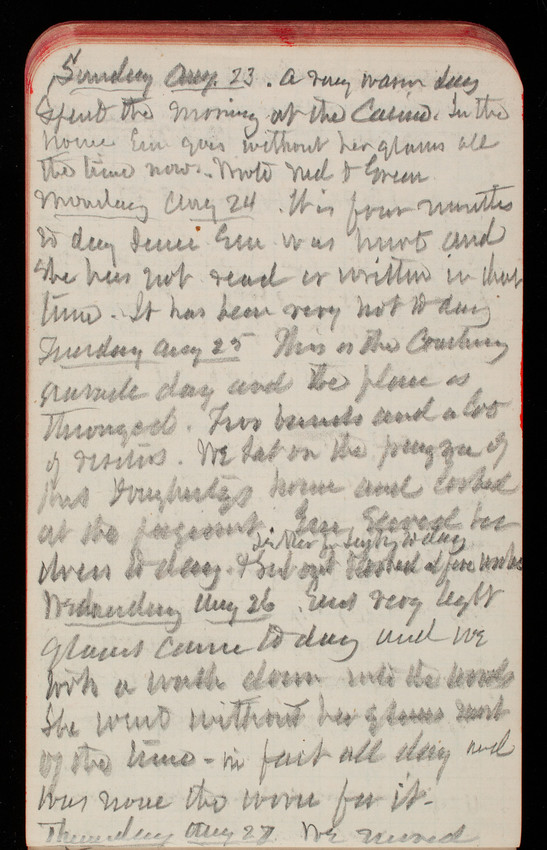 Sunday Aug. 23. A very warm day
Spent the morning at the Casino. In the
house Em goes without her glasses all
the time now. Wrote Ned & Green
Monday Aug 24. It is four months
to day since Em was hurt and
she has not read or written in that
time. It has been very hot to day
Tuesday Aug 25 This is the Coaching
parade day and the place is
thronged. Two bands and a lot
of visitors. We sat on the piazza of
Mrs Dougherty's house and looked
at the pageant. Em
dress to day.
to day
Wednesday Aug 26. Em's very light
glasses came to day and we
took a walk down into the woods
She went without her glasses most
of the time - in fact all day and
was none the worse for it -
Thursday Aug 27. We moved